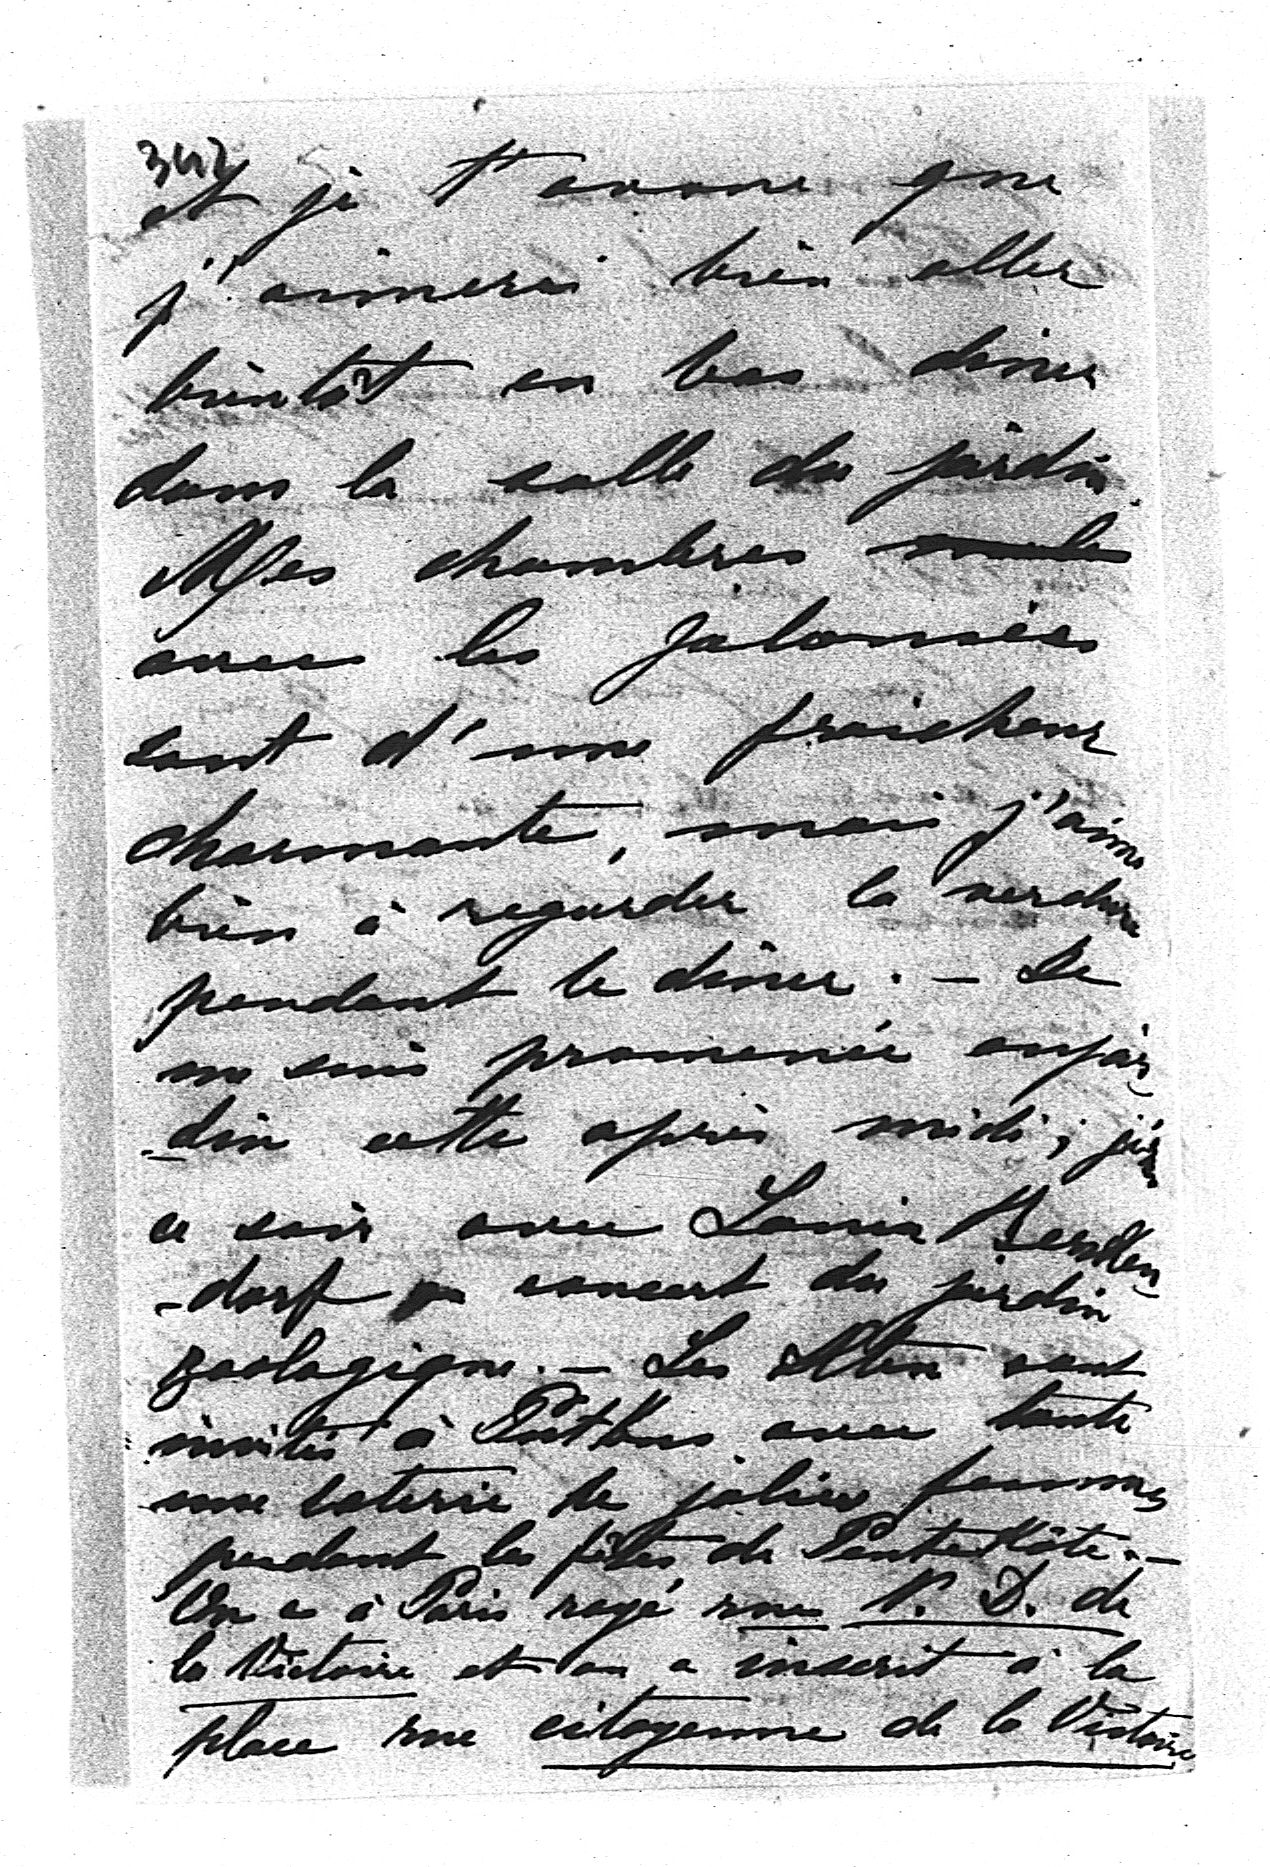 342
et je t'avoue que
j'aimerai bien aller
bientôt en bas diner
dans la salle du jardin.
Mes chambres
avec les jalousies
sont d'une fraicheur
charmante, mais j'aime
bien à regarder la verdure
pendant le diner. — Je
me suis promenée au jar
-din cette après midi;
ce soir avec Louis
-dorf au concert du jardin
zoologique. — Les sont
invités à Putbus avec toute
une de jolies femmes
pendant les fêtes de Pentekôte. —
On a à Paris rayé rue N. D. de
la Victoire et on a inscrit à la
place rue citoyenne de la Victoire